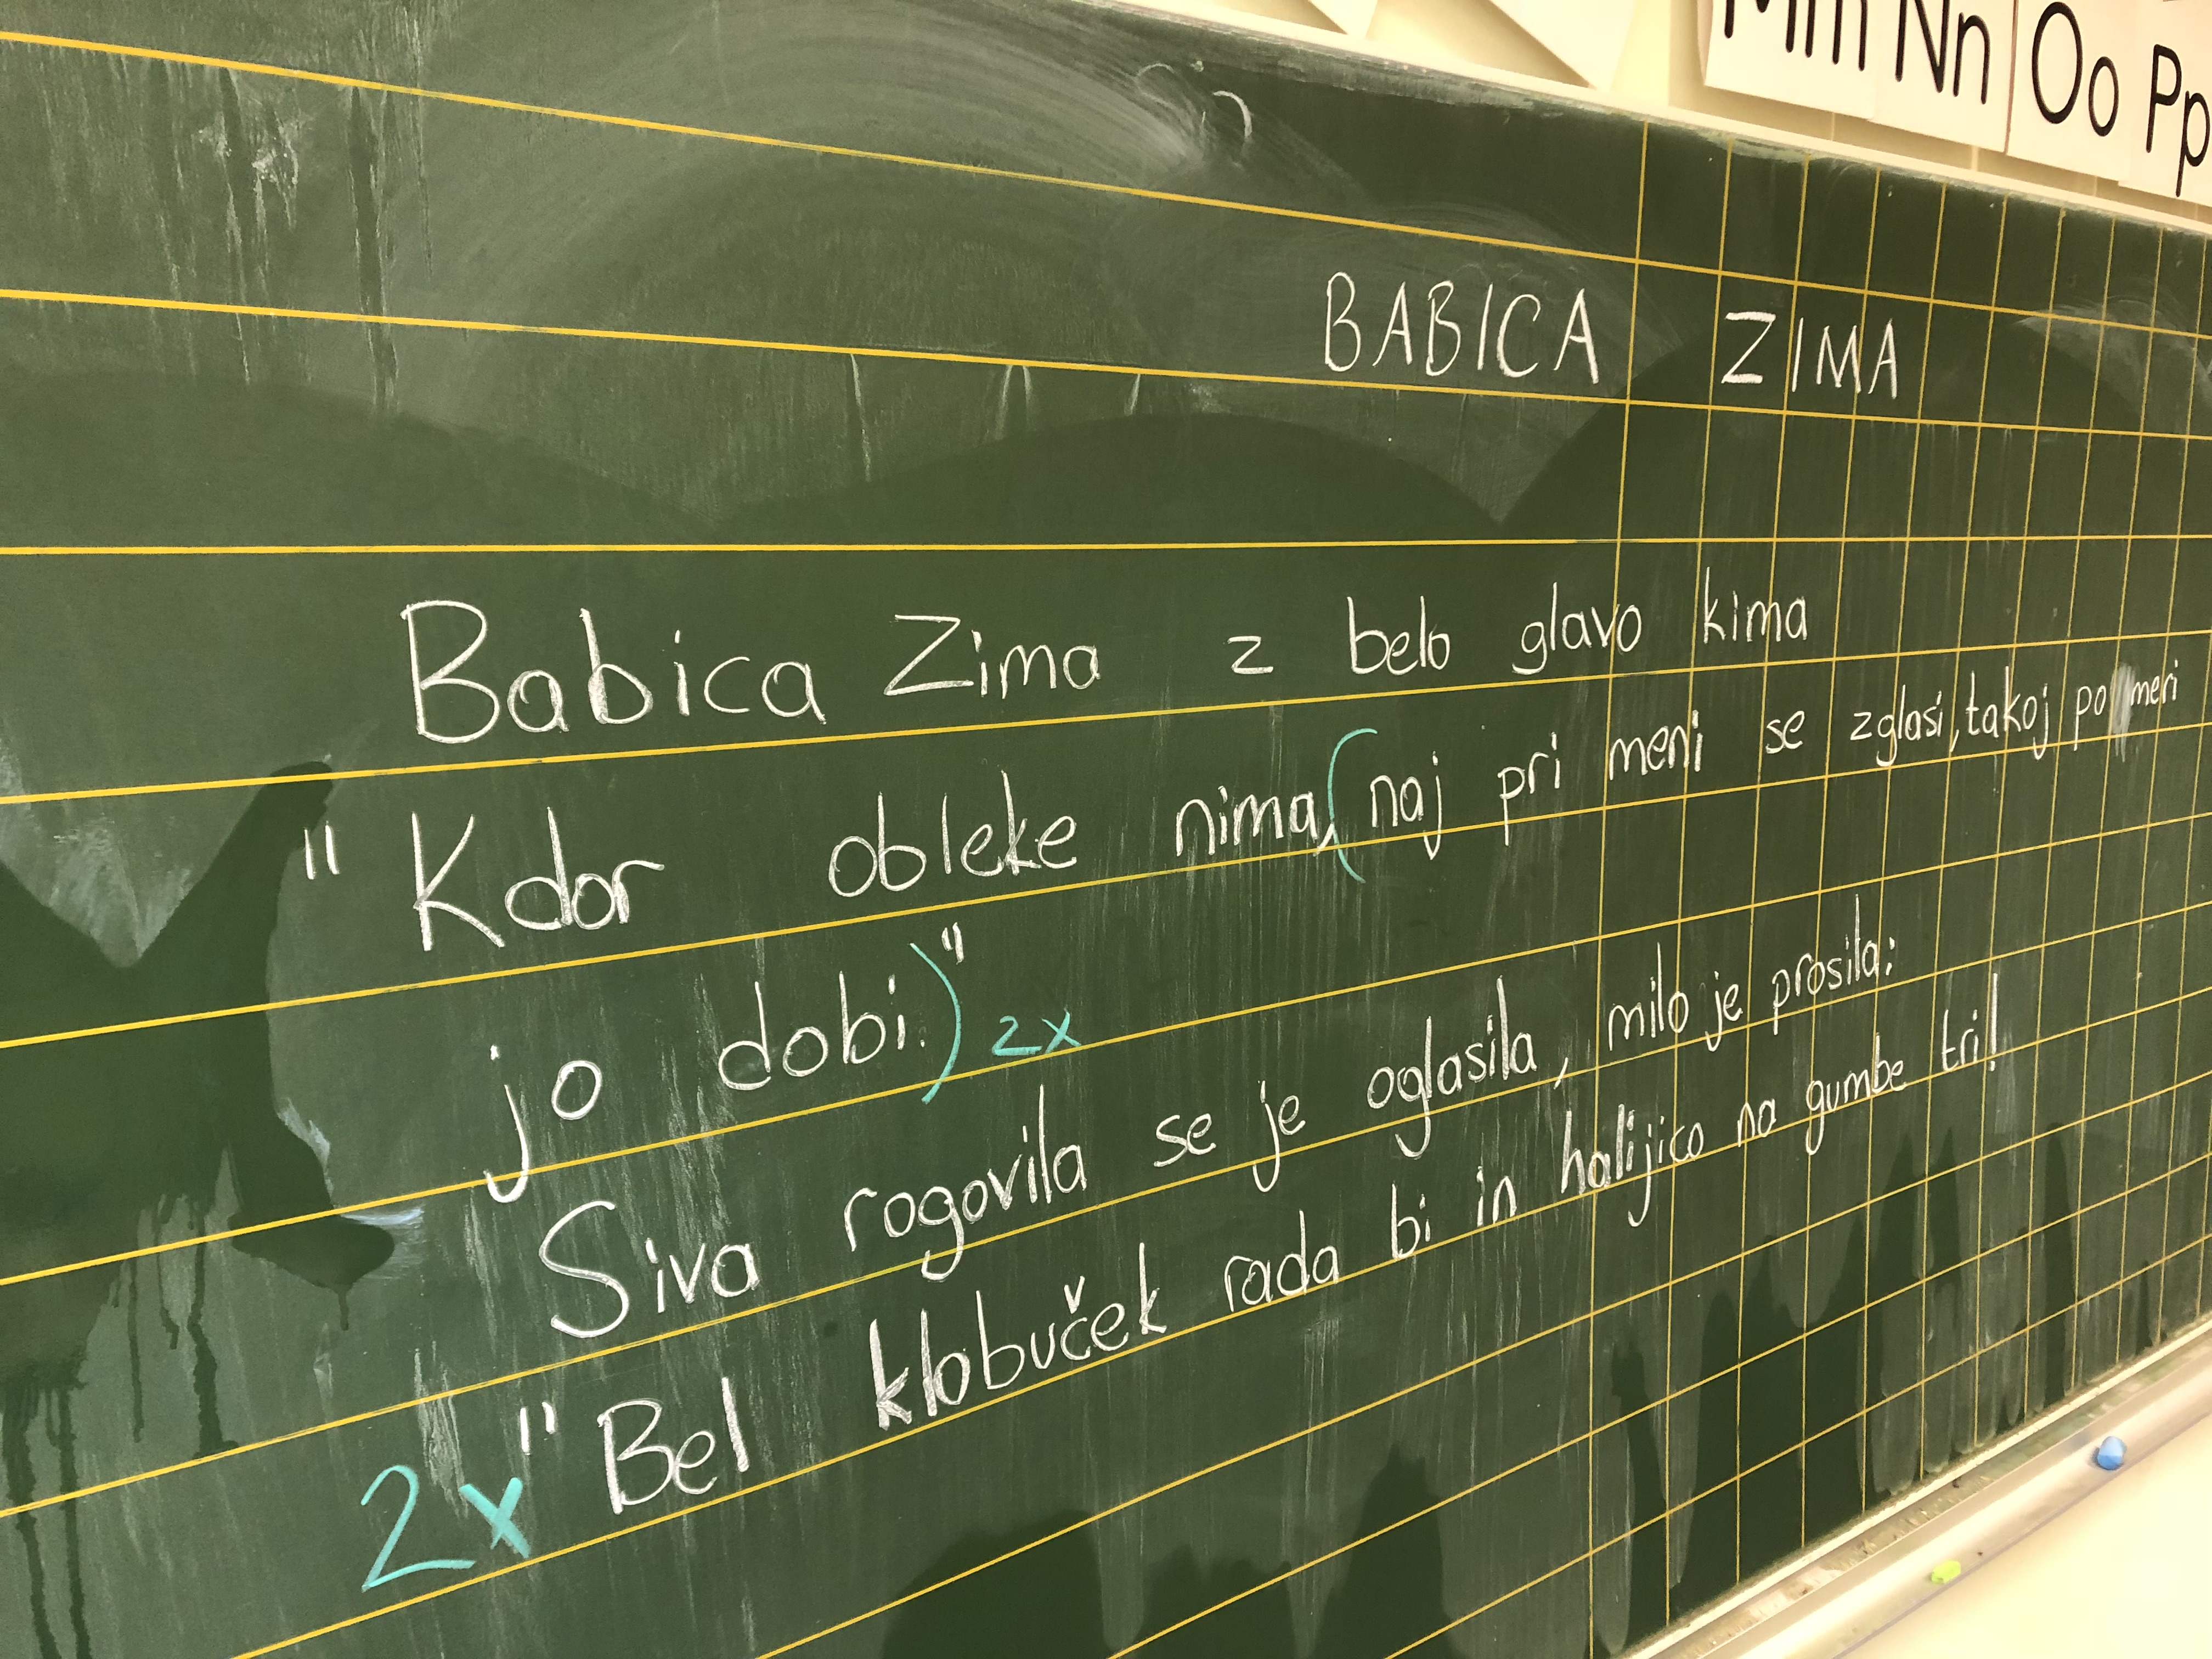 Mm Nn Oo Pp
BABICA ZIMA
Babica Zima z belo glavo kima
"Kdor obleke nima, (naj pri meni se zglasi, takoj po meri
jo dobi.)" 2x
Siva rogovila se je oglasila, milo je prosila:
2x "Bel klobuček rada bi in halijico na gumbe tri!